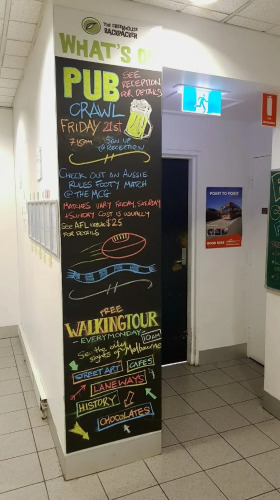 THE GREENHOUSE
BACKPACKER
WHAT'S O
PUB
CRAWL
SEE
RECEPTION
FOR DETAILS
FRIDAY 21st
SIGN UP
@ RECEPTION
CHECK OUT AN AUSSIE
RULES FOOTY MATCH
@ THE MCG
MATCHES VARY FRIDAY, SATURDAY
+ SUNDAY COST IS USUALLY
$25
SEE AFL
FOR DETAILS
FREE
WALKING TOUR
- EVERY MONDAY -
10AM
See the alley
sights of Melbourne
STREET ART
CAFES
LANEWAYS
HISTORY
CHOCOLATES
POINT TO POINT